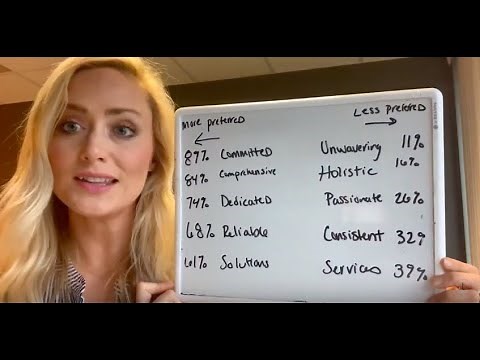 More preferred Less prefereD
89% CommitteD Unwavering 11%
84% Comprehensive Holistic 16%
74% DedicateD Passionate 26%
68% Reliable Consistent 32%
61% Solutions Services 39%